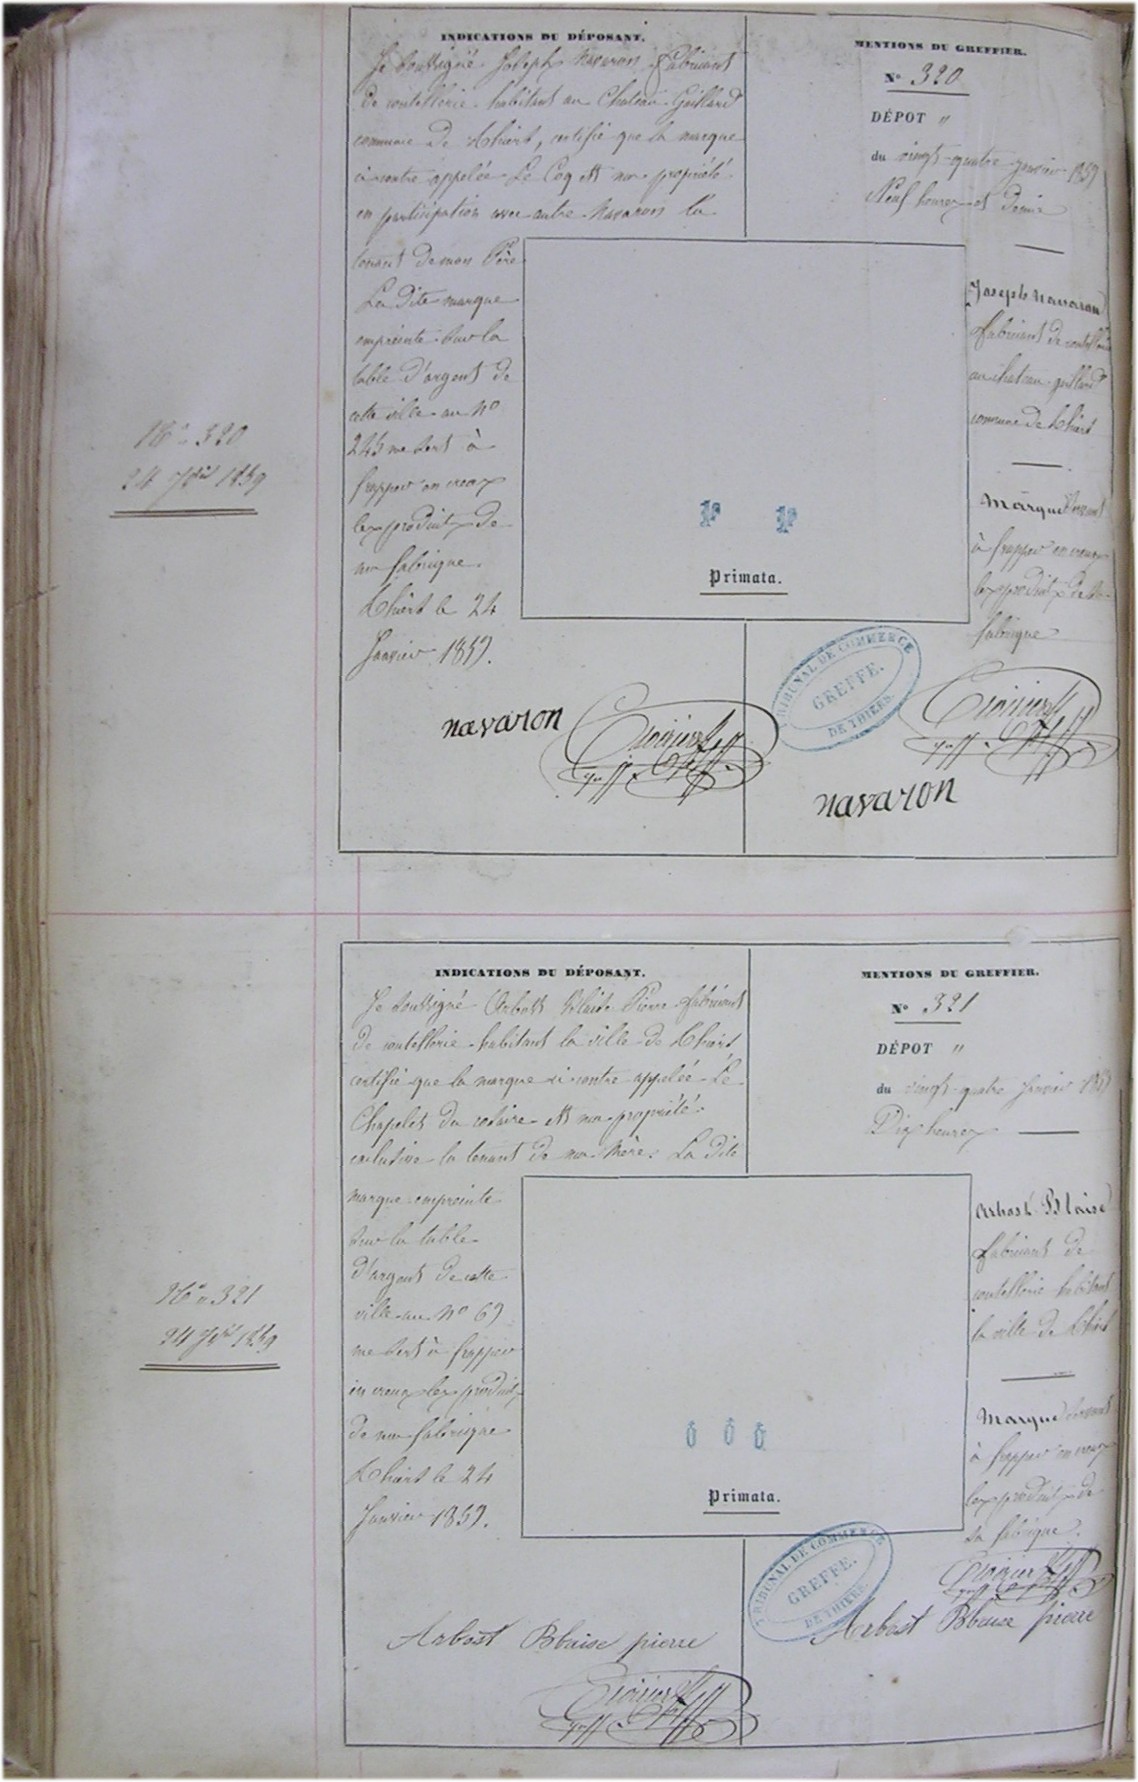 INDICATIONS DU DÉPOSANT.
Je soussigné Joseph Navaron fabricant
de coutellerie habitant au Chateau Gaillard
commune de Thiers, certifie que la marque
ci contre appelée Le Coq est ma propriété
en participation avec autre Navaron la
tenant de mon Père
La dite marque
empreinte sur la
table d'argent de
cette ville au No
245 me sert à
frapper en creux
les produits de
ma fabrique.
Thiers le 24
Janvier 1859.
navaron
MENTIONS DU GREFFIER.
No 320
DÉPOT "
du vingt-quatre janvier 1859
Neuf heures et demie
Joseph Navaron
fabricant de coutellerie
au chateau gaillard
commune de Thiers
Marque servant
à frapper en creux
les produits de sa
fabrique
Primata.
TRIBUNAL DE COMMERCE
GREFFE.
DE THIERS.
navaron
No 320
24 Jer 1859
INDICATIONS DU DÉPOSANT.
Je soussigné Arbost Blaise Pierre fabricant
de coutellerie habitant la ville de Thiers
certifie que la marque ci contre appelée Le
Chapelet du rosaire est ma propriété
exclusive la tenant de ma Mère. La dite
marque empreinte
sur la table
d'argent de cette
ville au No 69
me sert à frapper
en creux les produits
de ma fabrique
Thiers le 24
Janvier 1859.
Arbost Blaise pierre
MENTIONS DU GREFFIER.
No 321
DÉPOT "
du vingt-quatre Janvier 1859
Dix heures
Arbost Blaise
fabricant de
coutellerie habitant
la ville de Thiers
Marque servant
à frapper en creux
les produits de
sa fabrique.
Primata.
TRIBUNAL DE COMMERCE
GREFFE.
DE THIERS.
Arbost Blaise pierre
No 321
24 Jer 1859